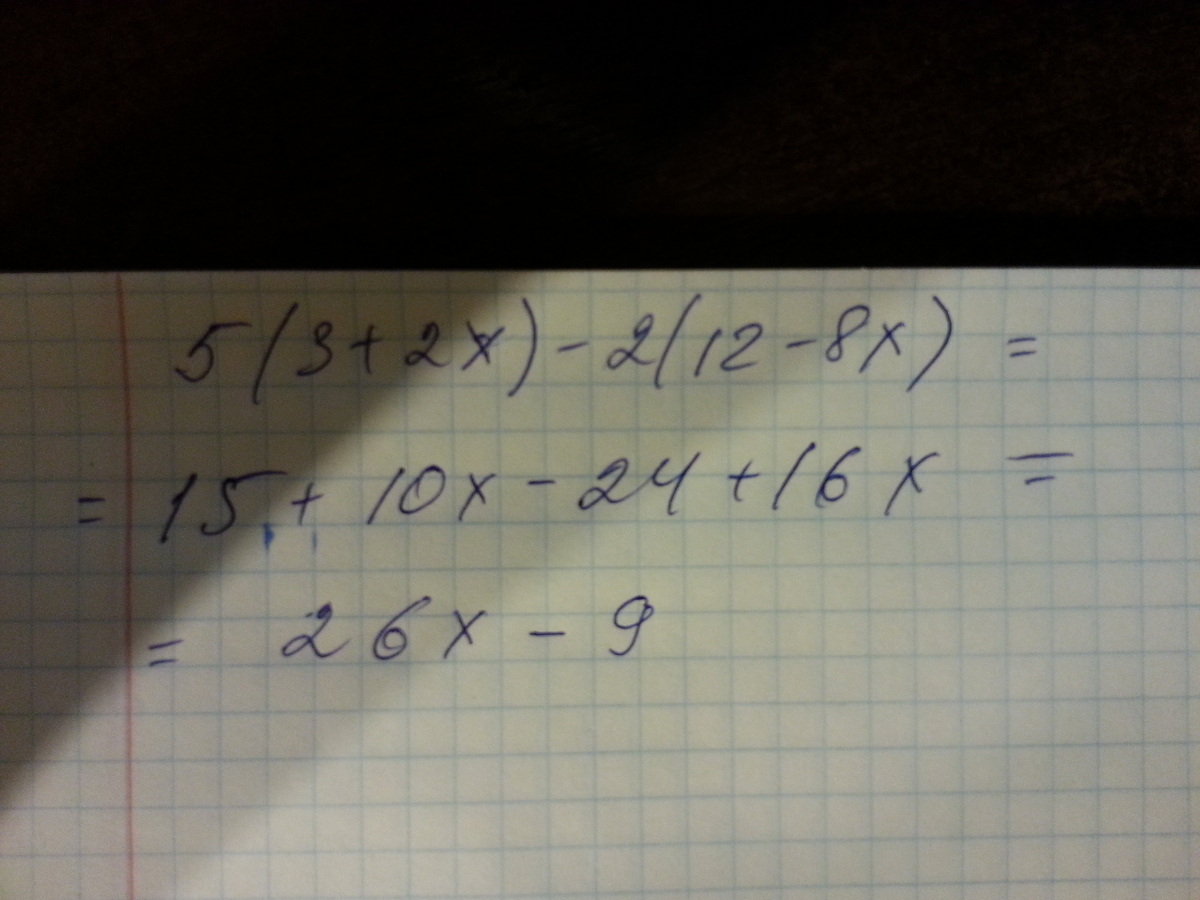 5(3+2x)-2(12-8x) =
= 15+10x-24+16x =
= 26x-9